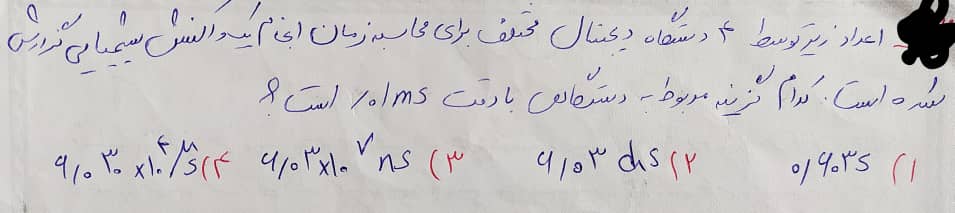 اعداد زیر توسط ۴ دستگاه دیجیتال مختلف برای محاسبه زمان انجام یک واکنش شیمیایی گزارش
شده است. کدام گزینه مربوط به دستگاهی با دقت ۰/۱ms است؟
۱) ۰/۶۰۳s ۲) ۶/۰۳ ds ۳) ۶/۰۳×۱۰^۷ ns ۴) ۶/۰۳۰×۱۰^۴ μs